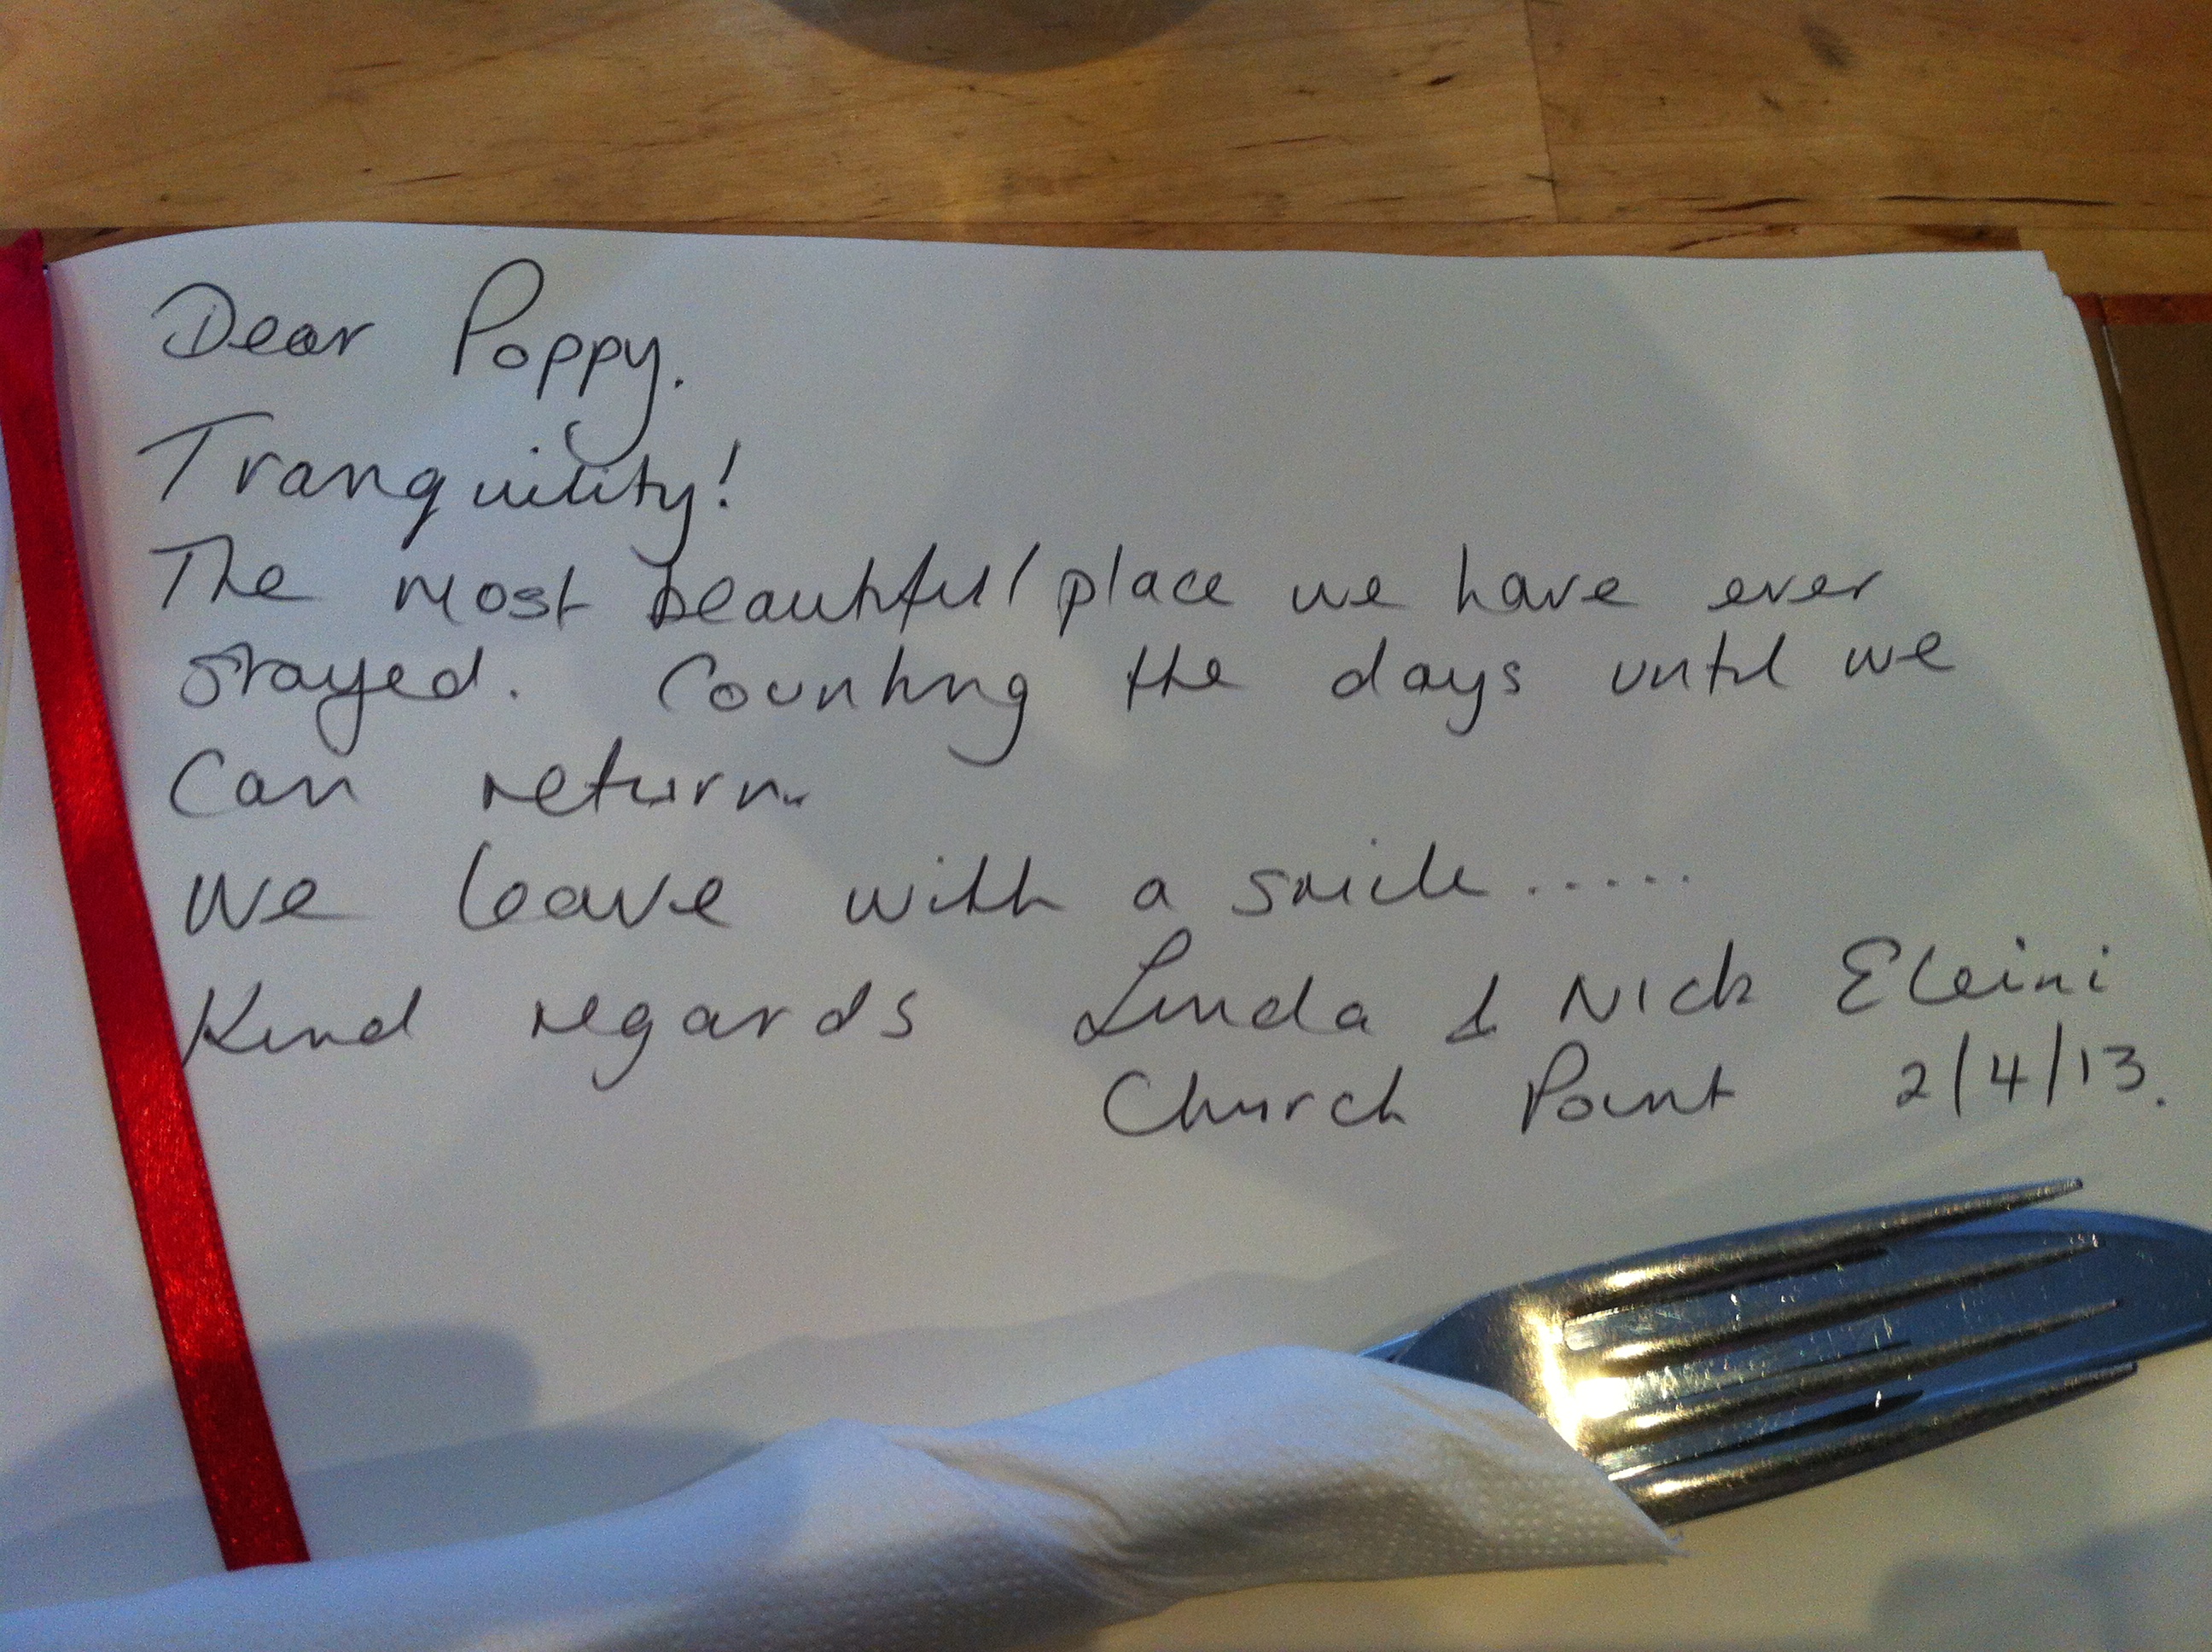 Dear Poppy.
Tranquility!
The most beautiful place we have ever
stayed. Counting the days until we
can return.
We leave with a smile......
Kind regards Linda & Nick Eleini
Church Point 2/4/13.